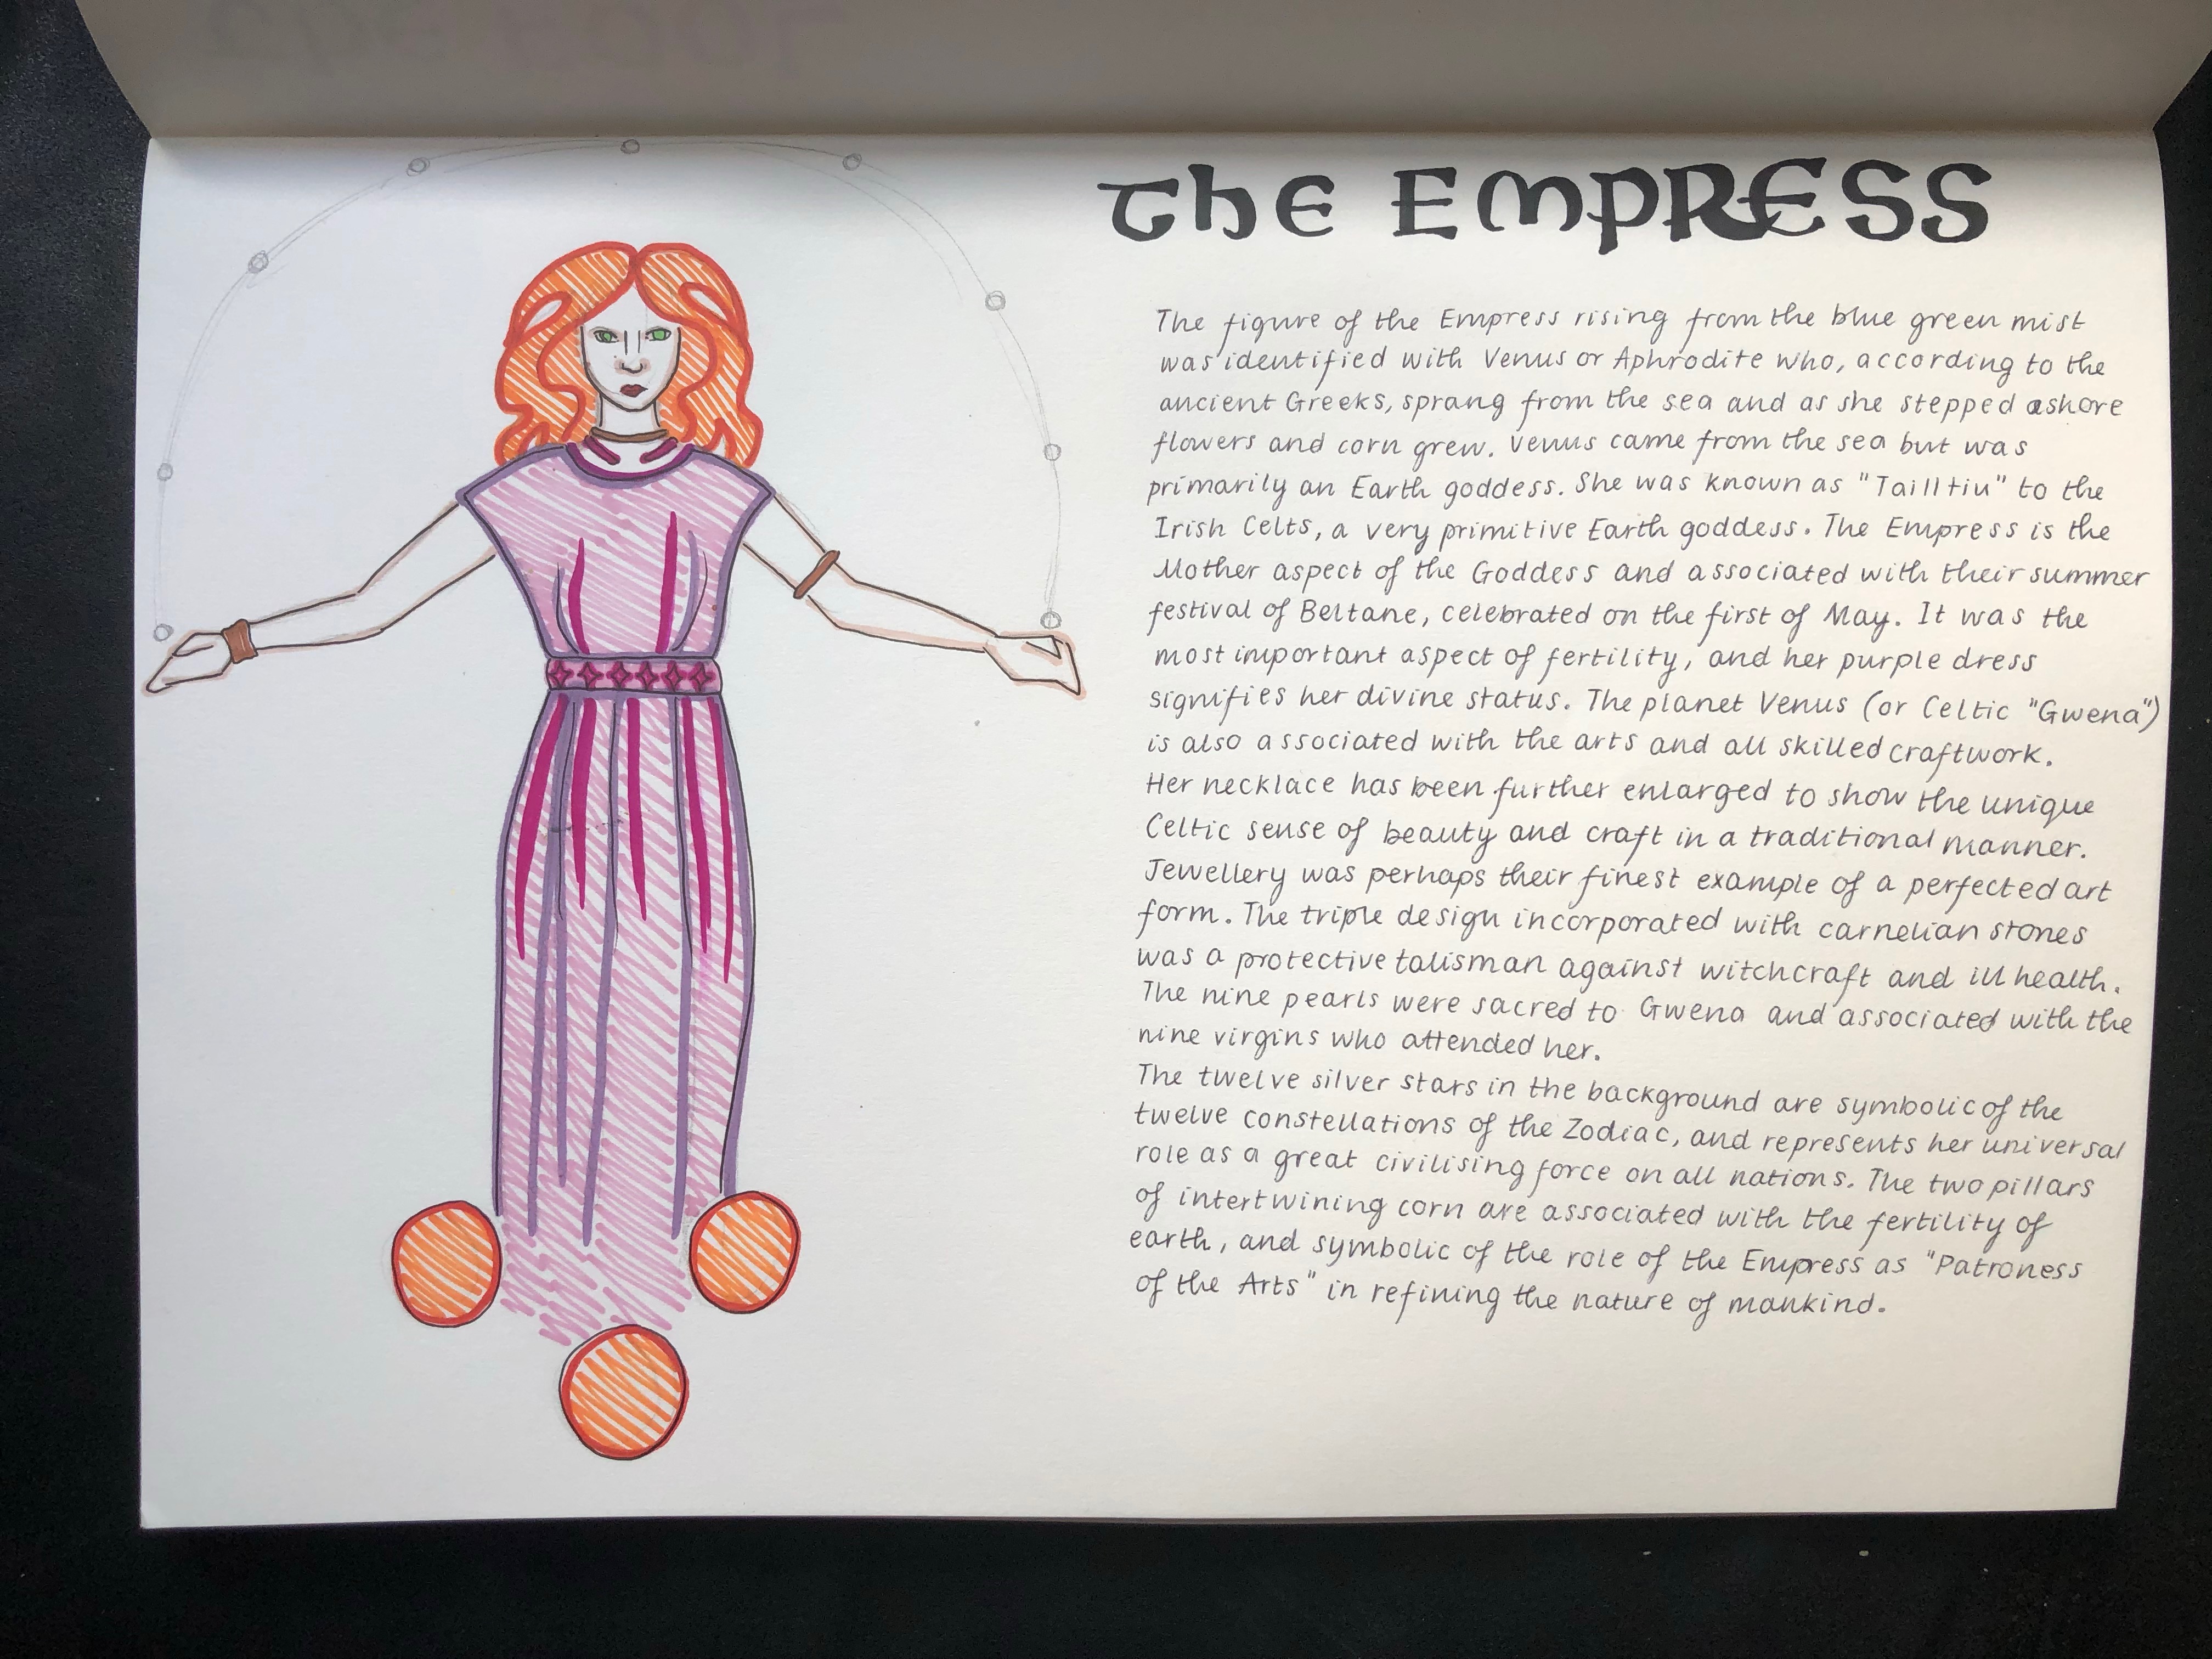 The Empress
The figure of the Empress rising from the blue green mist
was identified with Venus or Aphrodite who, according to the
ancient Greeks, sprang from the sea and as she stepped ashore
flowers and corn grew. Venus came from the sea but was
primarily an Earth goddess. She was known as "Tailltiu" to the
Irish Celts, a very primitive Earth goddess. The Empress is the
Mother aspect of the Goddess and associated with their summer
festival of Beltane, celebrated on the first of May. It was the
most important aspect of fertility, and her purple dress
signifies her divine status. The planet Venus (or Celtic "Gwena")
is also associated with the arts and all skilled craftwork.
Her necklace has been further enlarged to show the unique
Celtic sense of beauty and craft in a traditional manner.
Jewellery was perhaps their finest example of a perfected art
form. The triple design incorporated with carnelian stones
was a protective talisman against witchcraft and ill health.
The nine pearls were sacred to Gwena and associated with the
nine virgins who attended her.
The twelve silver stars in the background are symbolic of the
twelve constellations of the Zodiac, and represents her universal
role as a great civilising force on all nations. The two pillars
of intertwining corn are associated with the fertility of
earth, and symbolic of the role of the Empress as "Patroness
of the Arts" in refining the nature of mankind.